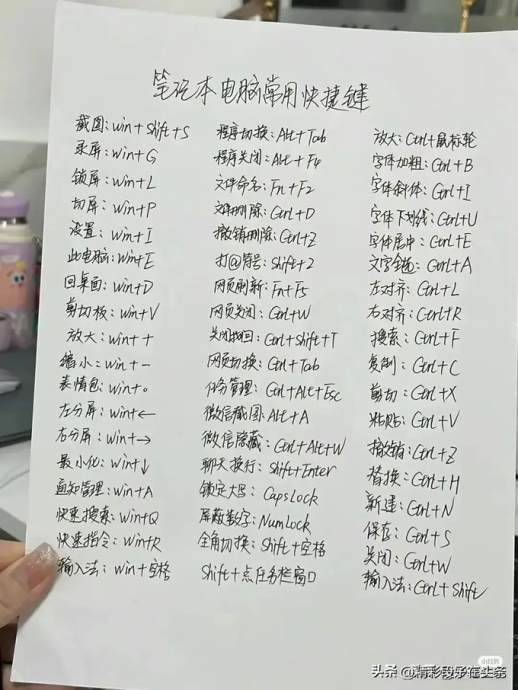 笔记本电脑常用快捷键
截图：win+shift+S
录屏：win+G
锁屏：win+L
切屏：win+P
设置：win+I
此电脑：win+E
回桌面：win+D
剪切板：win+V
放大：win++
缩小：win+-
表情包：win+。
左分屏：win+←
右分屏：win+→
最小化：win+↓
通知管理：win+A
快速搜索：win+Q
快速指令：win+R
输入法：win+空格
程序切换：Alt+Tab
程序关闭：Alt+F4
文件命名：Fn+F2
文件删除：Ctrl+D
撤销删除：Ctrl+Z
打@符号：Shift+2
网页刷新：Fn+F5
网页关闭：Ctrl+W
关闭找回：Ctrl+Shift+T
网页切换：Ctrl+Tab
任务管理：Ctrl+Alt+Esc
微信截图：Alt+A
微信隐藏：Ctrl+Alt+W
聊天换行：Shift+Enter
锁定大写：CapsLock
屏蔽数字：NumLock
全角切换：Shift+空格
Shift+点任务栏窗口
放大：Ctrl+鼠标轮
字体加粗：Ctrl+B
字体斜体：Ctrl+I
字体下划线：Ctrl+U
字体居中：Ctrl+E
文字全选：Ctrl+A
左对齐：Ctrl+L
右对齐：Ctrl+R
搜索：Ctrl+F
复制：Ctrl+C
剪切：Ctrl+X
粘贴：Ctrl+V
撤销：Ctrl+Z
替换：Ctrl+H
新建：Ctrl+N
保存：Ctrl+S
关闭：Ctrl+W
输入法：Ctrl+Shift
小红书
头条 @精彩段子在头条